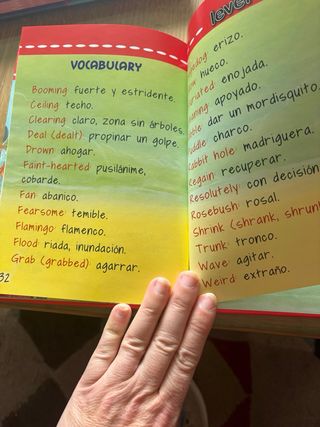 VOCABULARY
Booming fuerte y estridente.
Ceiling techo.
Clearing claro, zona sin árboles.
Deal (dealt) propinar un golpe.
Drown ahogar.
Faint-hearted pusilánime,
cobarde.
Fan abanico.
Fearsome temible.
Flamingo flamenco.
Flood riada, inundación.
Grab (grabbed) agarrar.
32
level
erizo.
hueco.
enojada.
apoyado.
dar un mordisquito.
charco.
Rabbit hole madriguera.
Regain recuperar.
Resolutely con decisión
Rosebush rosal.
Shrink (shrank, shrun
Trunk tronco.
Wave agitar.
Weird extraño.